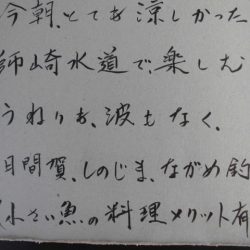 今朝、とても涼しかった
師崎水道で、楽しむ
うねりも、波もなく、
日間賀、しのじま、ながめ釣
小さい魚の料理メリット有